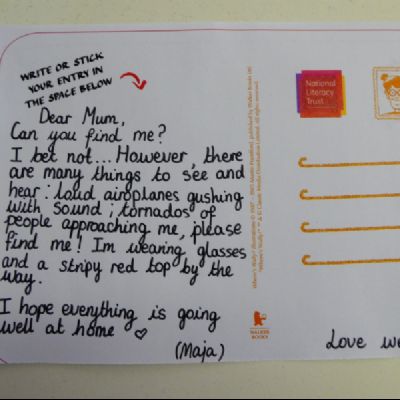 WRITE OR STICK
YOUR ENTRY IN
THE SPACE BELOW
Dear Mum,
Can you find me?
I bet not... However, there
are many things to see and
hear: laud airoplanes gushing
with sound; tornados of
people approaching me, please
find me! Im wearing glasses
and a stripy red top by the
way.
I hope everything is going
well at home ♡
(Maja)
National
Literacy
Trust
WALKER
BOOKS
Love we